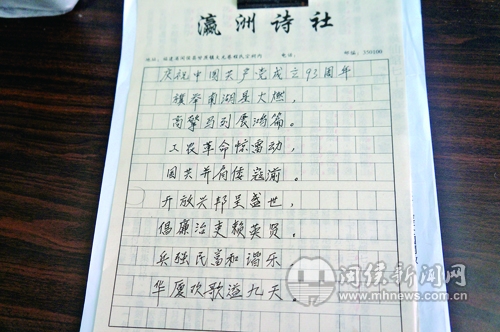 瀛洲诗社
地址：福建省闽侯县甘蔗镇 电话： 邮编：350100
庆祝中国共产党成立93周年
旗举南湖星火燃，
高擎马列展鸿篇。
工农革命惊雷动，
国共并肩倭寇湔。
开放兴邦呈盛世，
倡廉治吏赖英贤。
兵强民富和谐乐，
华厦欢歌溢九天。
闽侯新闻网
www.mhnews.com.cn